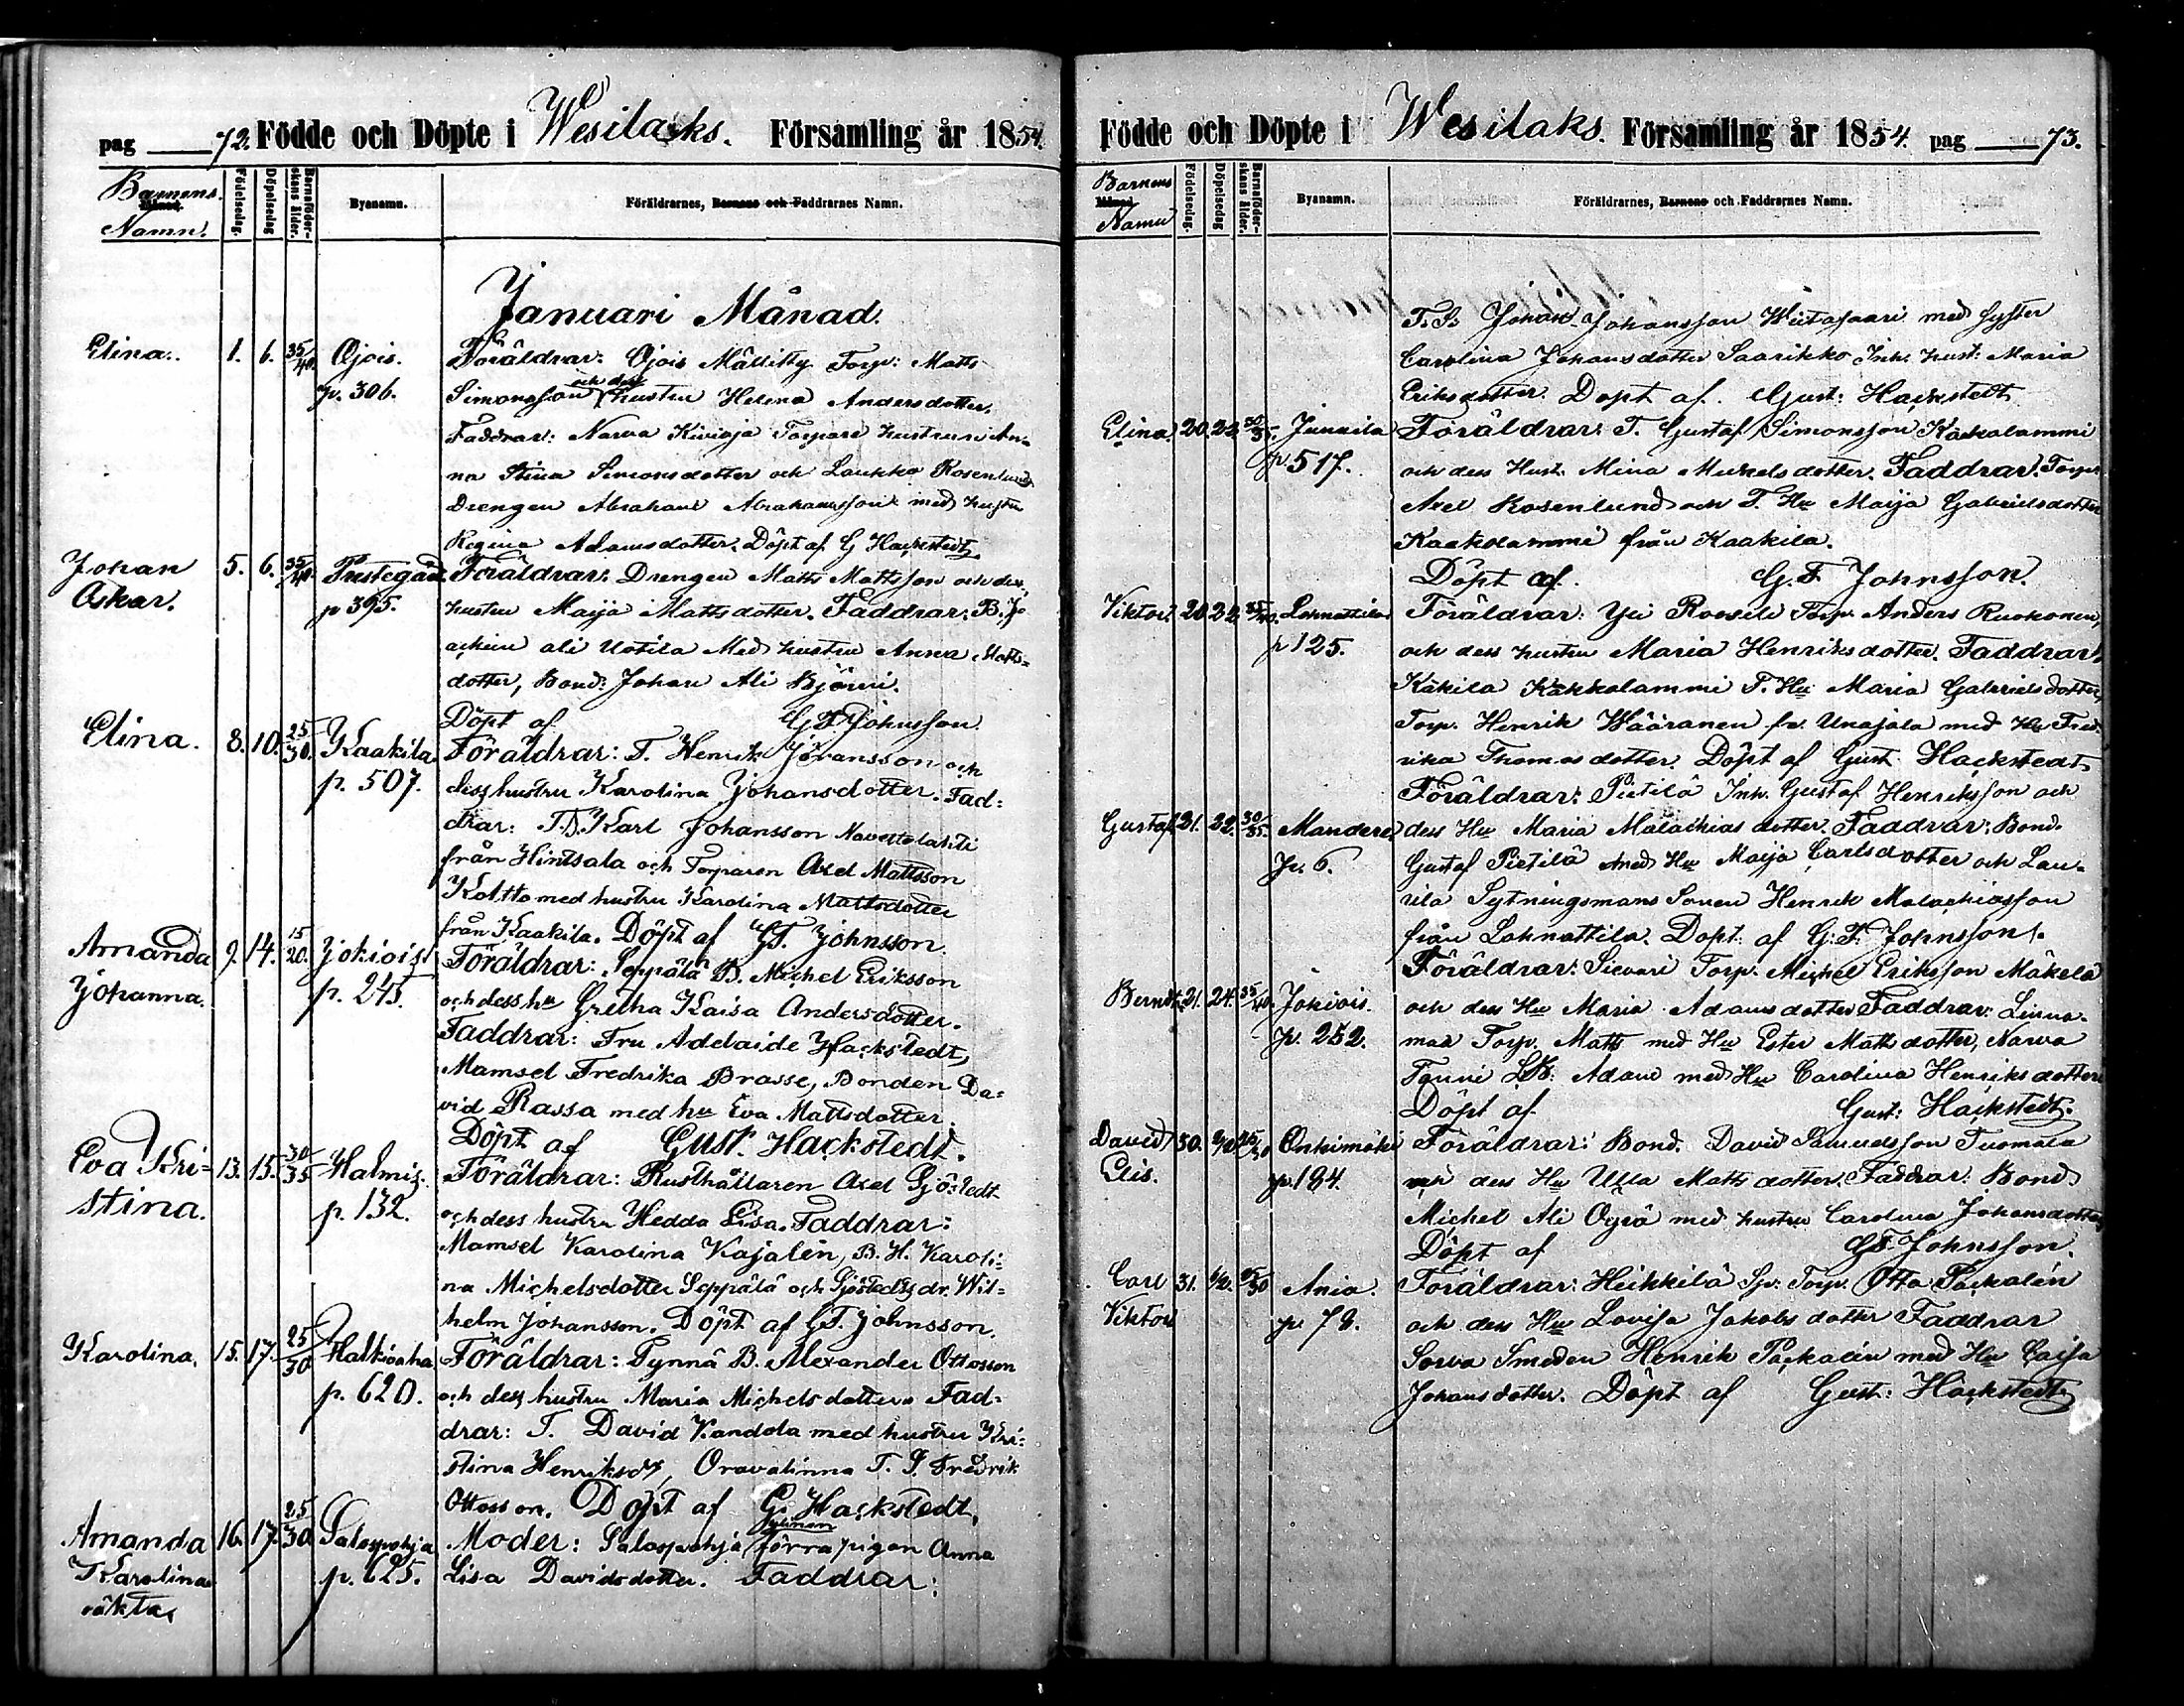 pag 72. Födde och Döpte i Wesilaks. Församling år 1854.
Barnens Namn.
Månad.
Födelsedag.
Döpelsedag
Barnaföderskans ålder.
Byanamn.
Föräldrarnes, Barnens och Faddrarnes Namn.
Januari Månad.
Elina. 1. 6. 35/40. Ojois. Föräldrar: Ojois Mällitty Torp: Matts
p. 306. Simonsson och dess hustru Helena Andersdotter.
Faddrar: Narva Kivioja Torpare hustrun An-
na Stina Simonsdotter och Laukko Rosenlund
Drengen Abraham Abrahamsson med hustru
Regina Adamsdotter. Döpt af G Hackstedt.
Johan 5. 6. 35/40. Prestegård. Föräldrar: Drengen Matts Mattsson och dess
Oskar. p 395. hustru Maija Mattsdotter. Faddrar: B. Jo
achim ali Uotila Med hustru Anna Matts-
dotter, Bond: Johan Ali Björni.
Döpt af G.F. Johnsson.
Elina. 8. 10. 25/30. Kaakila Föräldrar: T. Henrik Göransson och
p. 507. dess hustru Karolina Johansdotter. Fad=
drar: T.D. Karl Johansson Navettalahti
från Hintsala och Torparen Axel Mattsson
Koltto med hustru Karolina Mattsdotter
från Kaakila. Döpt af G.F. Johnsson.
Amanda 9. 14. 15/20. Jokiois Föräldrar: Seppälä D. Michel Eriksson
Johanna. p. 245. och dess hu Gretha Kaisa Andersdotter.
Faddrar: Fru Adelaide Hackstedt,
Mamsel Fredrika Brasse, Bonden Da=
vid Rassa med hu Eva Mattsdotter.
Döpt af Gust. Hackstedt.
Eva Kri= 13. 15. 30/35 Halmis. Föräldrar: Rusthållaren Axel Sjöstedt
stina. p. 132. och dess hustru Hedda Lisa. Faddrar:
Mamsel Karolina Kajalén, B. H. Karoli=
na Michelsdotter Seppälä och Sjöstedts dr. Wil=
helm Johansson. Döpt af G.F. Johnsson.
Karolina. 15. 17. 25/30 Halkivaha Föräldrar: Tynnä B. Alexander Ottosson
p. 620. och dess hustru Maria Michelsdotter. Fad=
drar: T. David Kandola med hustru Kri=
stina Henriksdr, Oravalinna T. S. Fredrik
Ottosson. Döpt af G. Hackstedt.
Amanda 16. 17. 25/30 Salospohja Moder: Salospohja förra pigan Anna
Karolina p. 625. Lisa Davidsdotter. Faddrar:
oäkta.
Födde och Döpte i Wesilaks. Församling år 1854. pag 73.
Barnens Namn
Månad
Födelsedag.
Döpelsedag
Barnaföderskans ålder.
Byanamn.
Föräldrarnes, Barnens och Faddrarnes Namn.
T. S. Johan Johansson Wiitasaari med syster
Carolina Johansdotter Saarikko Inh. hust: Maria
Eriksdotter. Döpt af. Gust: Hackstedt
Elina 20. 22. Junnila Föräldrar: T. Gustaf Simonsson Kaakolammi
p. 517. och dess Hust. Mina Mickelsdotter. Faddrar: Torp.
Axel Rosenlund och T. Hu Maija Gabrielsdotter
Kaakolammi från Kaakila.
Döpt af. G.F Johnsson.
Viktor. 20 22. Lahnattila Föräldrar: Yli Torp. Anders Ruokonen,
p 125. och dess hustru Maria Henriksdotter. Faddrar:
Käkilä Kakkolammi T. Hu Maria Gabrielsdotter,
Torp. Henrik Wääränen fr. Unajala med Hu Fred-
rika Thomasdotter. Döpt af Gust. Hackstedt.
Föräldrar: Pietilä Inh. Gustaf Henriksson och
Gustaf. 21. 22. 30/35. Mandere dess Hu Maria Malachiasdotter. Faddrar: Bond.
p. 6. Gustaf Pietilä med Hu Maija Carlsdotter och Lau-
rila Sytningsmans Sonen Henrik Malachiasson
från Lahnattila. Döpt af G.F. Johnsson.
Föräldrar: Sievari Torp. Michel Eriksson Mäkelä
Berndt 21. 24. 35/40. Jokiois. och dess Hu Maria Adamsdotter Faddrar: Linna-
p. 252. maa Torp. Matts med Hu Ester Mattsdotter, Narva
Tanni Adam med Hu Carolina Henriksdotter
Döpt af. Gust: Hackstedt.
David 30. Onkimäki Föräldrar: Bond. David Samuelsson Tuomala
Elis. p. 184. och dess Hu Ulla Mattsdotter. Faddrar: Bond
Michel Ali Öyrä med hustru Carolina Johansdotter
Döpt af G.F Johnsson.
Carl 31. Ania. Föräldrar: Heikkilä Sp. Torp. Otto Packalén
Viktor p. 78. och dess Hu Lovisa Jakobsdotter Faddrar
Sorva Smeden Henrik Packalén med Hu Caisa
Johansdotter. Döpt af Gust: Hackstedt